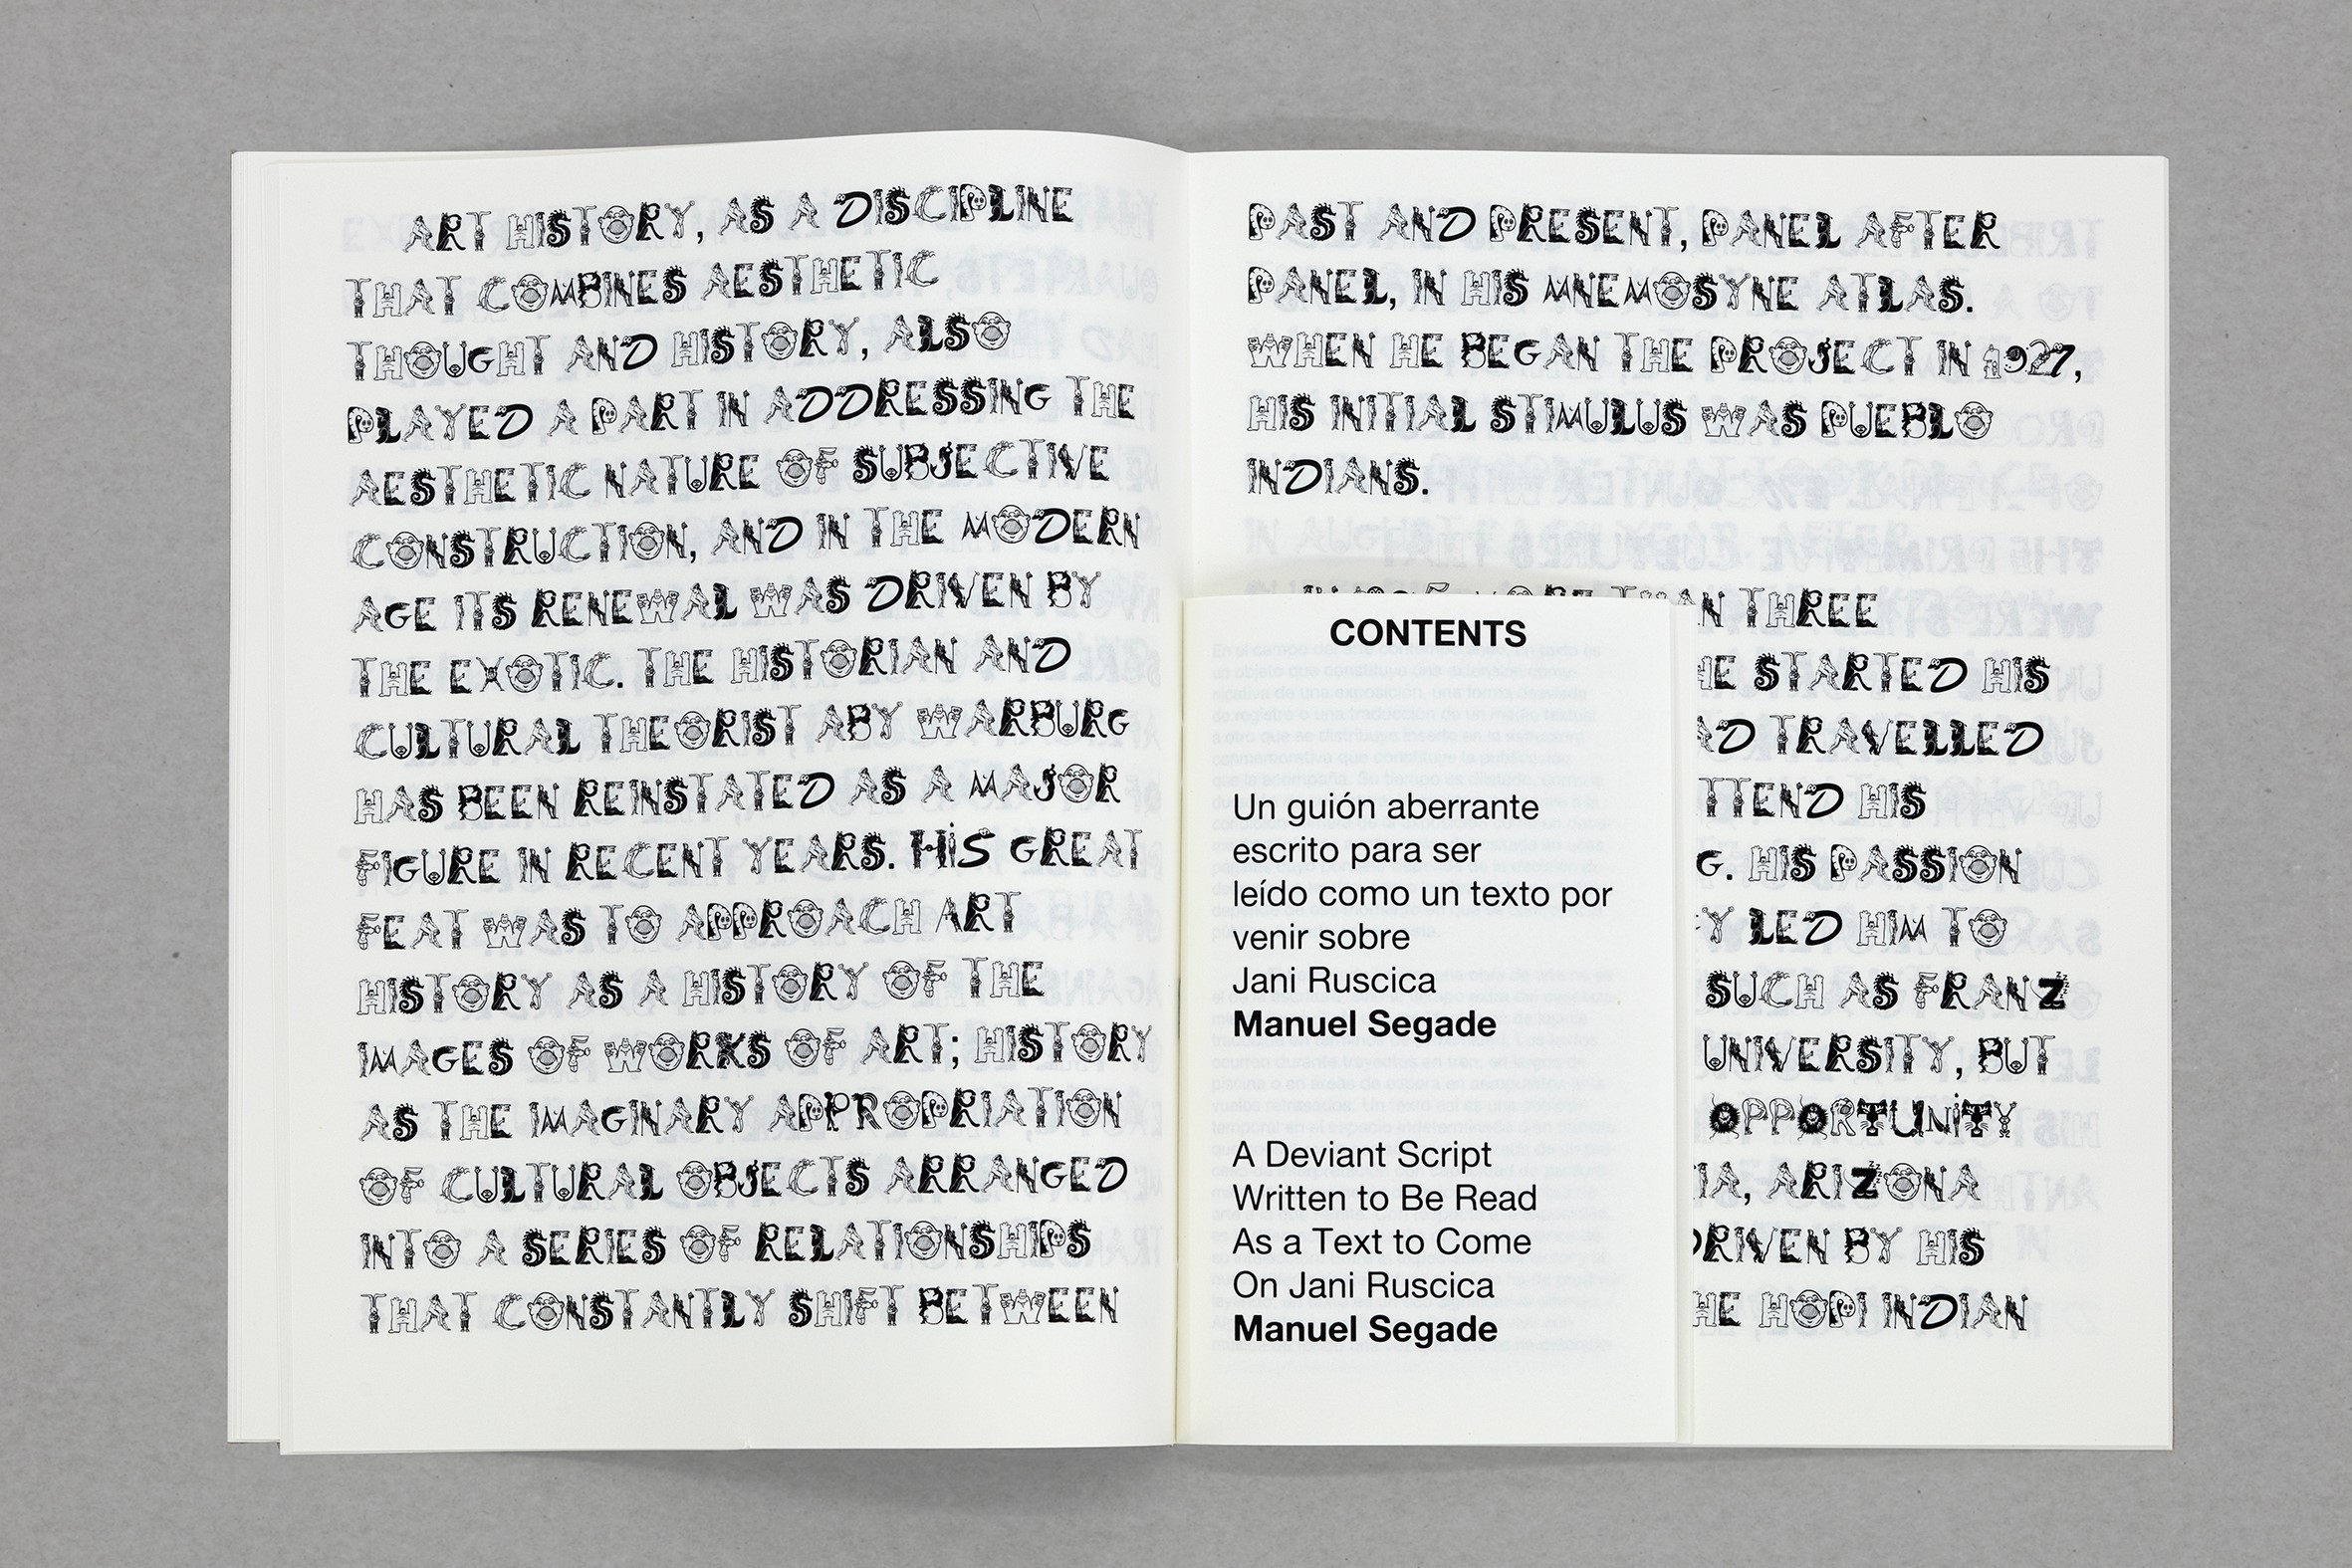 ART HISTORY, AS A DISCIPLINE
THAT COMBINES AESTHETIC
THOUGHT AND HISTORY, ALSO
PLAYED A PART IN ADDRESSING THE
AESTHETIC NATURE OF SUBJECTIVE
CONSTRUCTION, AND IN THE MODERN
AGE ITS RENEWAL WAS DRIVEN BY
THE EXOTIC. THE HISTORIAN AND
CULTURAL THEORIST ABY WARBURG
HAS BEEN REINSTATED AS A MAJOR
FIGURE IN RECENT YEARS. HiS GREAT
FEAT WAS TO APPROACH ART
HISTORY AS A HISTORY OF THE
IMAGES OF WORKS OF ART; HISTORY
AS THE IMAGINARY APPROPRIATION
OF CULTURAL OBJECTS ARRANGED
INTO A SERIES OF RELATIONSHIPS
THAT CONSTANTLY SHIFT BETWEEN
PAST AND PRESENT, PANEL AFTER
PANEL, IN HIS MNEMOSYNE ATLAS.
WHEN HE BEGAN THE PROJECT IN 1927,
HIS INITIAL STIMULUS WAS PUEBLO
INDIANS.
THREE
STARTED HIS
TRAVELLED
HIS
HIS PASSION
LED HIM TO
SUCH AS FRANZ
UNIVERSITY, BUT
OPPORTUNiTY
ARIZONA
DRIVEN BY HIS
HOPI INDIAN
CONTENTS
Un guión aberrante
escrito para ser
leído como un texto por
venir sobre
Jani Ruscica
Manuel Segade
A Deviant Script
Written to Be Read
As a Text to Come
On Jani Ruscica
Manuel Segade